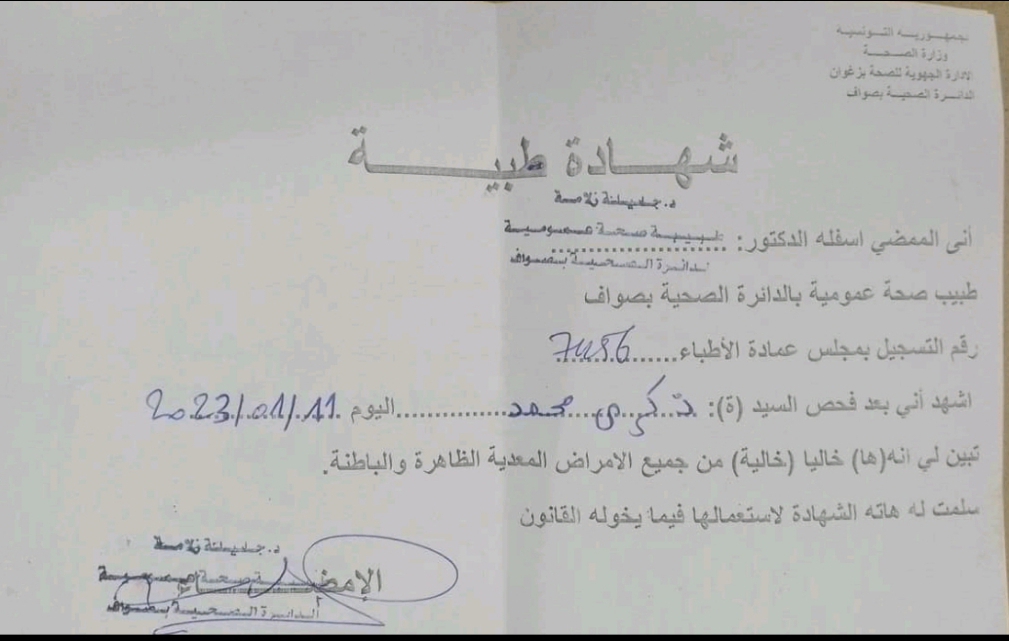 الجمهوريـــة التـــونسيـــة
وزارة الصــحــة
الادارة الجهوية للصحة بزغوان
الدائـــرة الصحيـــة بصواف
شهـــادة طبيـــة
د. جليلة
أنى الممضي اسفله الدكتور: طـبـيـبـة صـحـة عـمـومـيـة
الدائـرة الـصـحـيـة بـصـواف
طبيب صحة عمومية بالدائرة الصحية بصواف
رقم التسجيل بمجلس عمادة الأطباء.......7486
اشهد أني بعد فحص السيد (ة): محمد اليوم 2023/01/11
تبين لي انه(ها) خاليا (خالية) من جميع الامراض المعدية الظاهرة والباطنة.
سلمت له هاته الشهادة لاستعمالها فيما يخوله القانون
د. جليلة
الإمضــاء
طـبـيـبـة صـحـة عـمـومـيـة
الدائـرة الـصـحـيـة بـصـواف